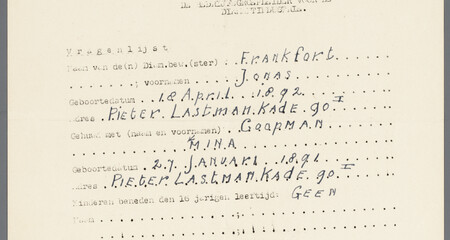 Vragenlijst
Naam van de(n) Diam.bew.(ster) : Frankfort
; voornamen Jonas
Geboortedatum 18 April 1892
Adres Pieter Lastman Kade 90 I
Gehuwd met (naam en voornamen) Goopman
Mina
Geboortedatum 27 Januari 1891
Adres Pieter Lastman Kade 90 I
Kinderen beneden den 16 jarigen leeftijd: Geen
Naam